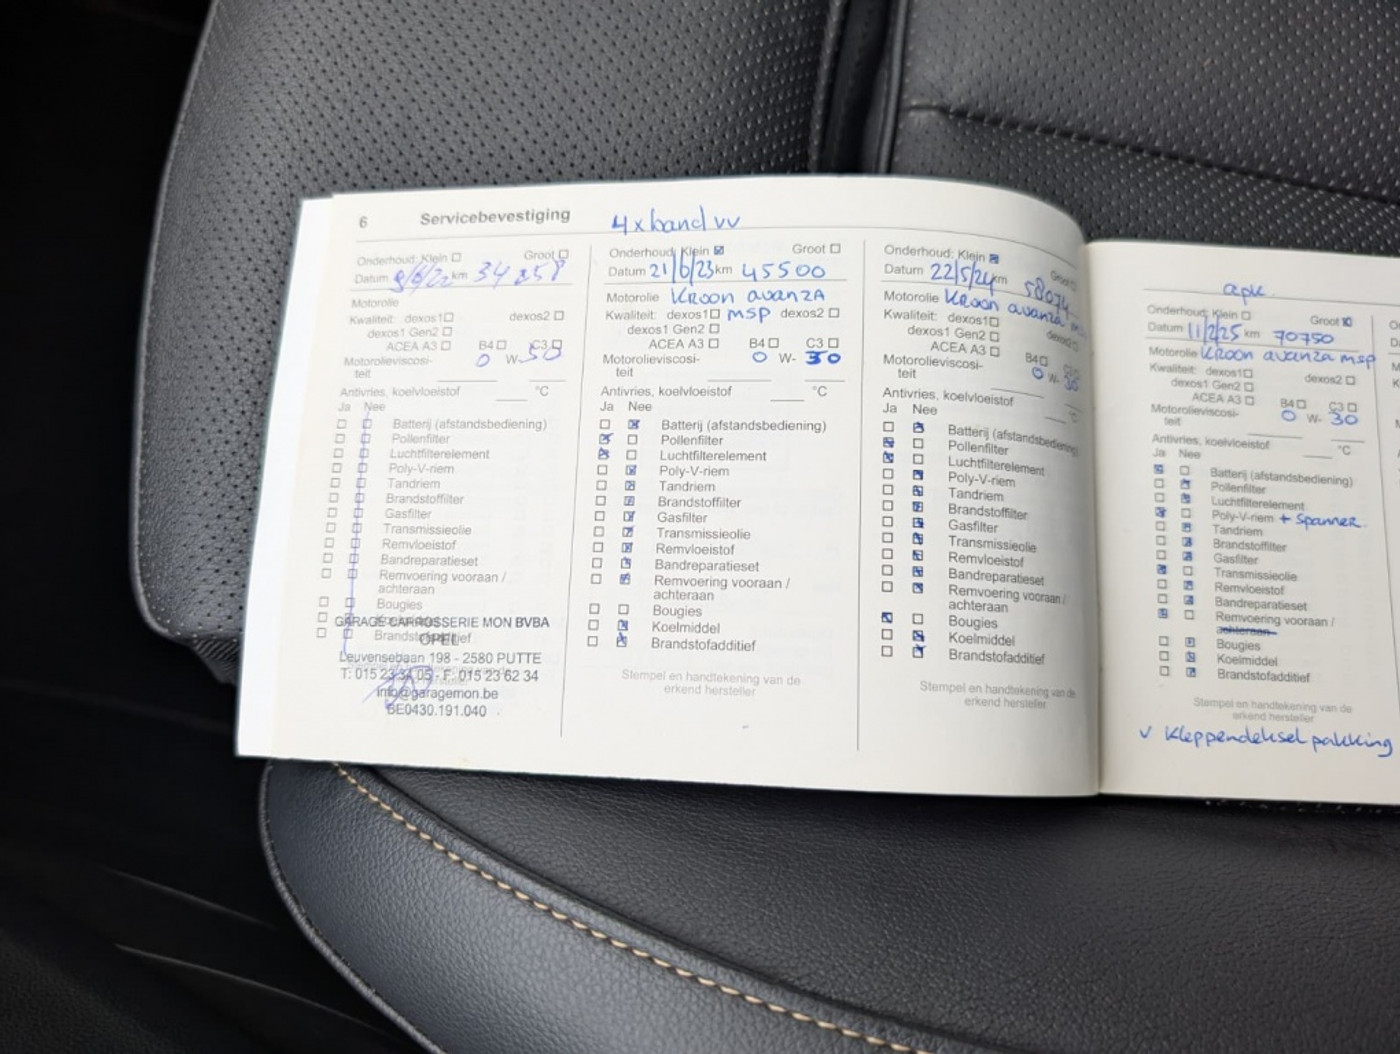 6 Servicebevestiging 4x band vv
Onderhoud: Klein Groot
Datum 9/6/22 km 34 258
Motorolie
Kwaliteit: dexos1 dexos2
dexos1 Gen2
ACEA A3 B4 C3
Motorolieviscosi- 0 W- 30
teit
Antivries, koelvloeistof °C
Ja Nee
Batterij (afstandsbediening)
Pollenfilter
Luchtfilterelement
Poly-V-riem
Tandriem
Brandstoffilter
Gasfilter
Transmissieolie
Remvloeistof
Bandreparatieset
Remvoering vooraan /
achteraan
Bougies
GARAGE CARROSSERIE MON BVBA
OPEL
Leuvensebaan 198 - 2580 PUTTE
T: 015 23 34 05 - F: 015 23 62 34
info@garagemon.be
BE0430.191.040
Onderhoud: Klein Groot
Datum 21/6/23 km 45500
Motorolie Kroon avanza
Kwaliteit: dexos1 msp dexos2
dexos1 Gen2
ACEA A3 B4 C3
Motorolieviscosi- 0 W- 30
teit
Antivries, koelvloeistof °C
Ja Nee
Batterij (afstandsbediening)
Pollenfilter
Luchtfilterelement
Poly-V-riem
Tandriem
Brandstoffilter
Gasfilter
Transmissieolie
Remvloeistof
Bandreparatieset
Remvoering vooraan /
achteraan
Bougies
Koelmiddel
Brandstofadditief
Stempel en handtekening van de
erkend hersteller
Onderhoud: Klein Groot
Datum 22/5/24 km 58074
Motorolie Kroon avanza
Kwaliteit: dexos1 dexos2
dexos1 Gen2
ACEA A3 B4 C3
Motorolieviscosi- 0 W- 30
teit
Antivries, koelvloeistof °C
Ja Nee
Batterij (afstandsbediening)
Pollenfilter
Luchtfilterelement
Poly-V-riem
Tandriem
Brandstoffilter
Gasfilter
Transmissieolie
Remvloeistof
Bandreparatieset
Remvoering vooraan /
achteraan
Bougies
Koelmiddel
Brandstofadditief
Stempel en handtekening van de
erkend hersteller
apk
Onderhoud: Klein Groot
Datum 11/2/25 km 70750
Motorolie Kroon avanza msp
Kwaliteit: dexos1 dexos2
dexos1 Gen2
ACEA A3 B4 C3
Motorolieviscosi- 0 W- 30
teit
Antivries, koelvloeistof °C
Ja Nee
Batterij (afstandsbediening)
Pollenfilter
Luchtfilterelement
Poly-V-riem + spanner
Tandriem
Brandstoffilter
Gasfilter
Transmissieolie
Remvloeistof
Bandreparatieset
Remvoering vooraan /
achteraan
Bougies
Koelmiddel
Brandstofadditief
Stempel en handtekening van de
erkend hersteller
v Kleppendeksel pakking